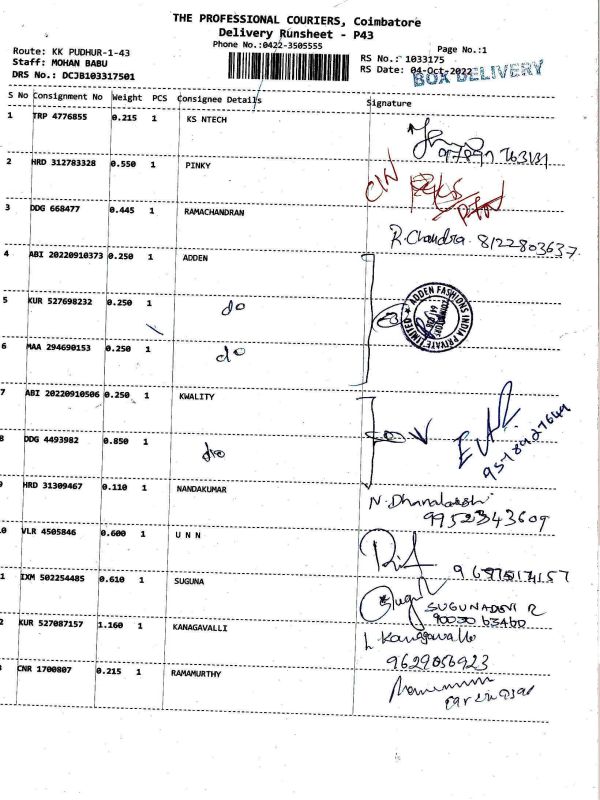 THE PROFESSIONAL COURIERS, Coimbatore
Delivery Runsheet - P43
Phone No.:0422-3505555
Page No.:1
Route: KK PUDHUR-1-43
Staff: MOHAN BABU
DRS No.: DCJB103317501
RS No.: 1033175
RS Date: 04-Oct-2022
BOX DELIVERY
S No Consignment No Weight PCS Consignee Details Signature
1 TRP 4776855 0.215 1 KS NTECH
2 HRD 312783328 0.550 1 PINKY
CIN
3 DDG 668477 0.445 1 RAMACHANDRAN
R.Chandra 8122803637
4 ABI 20220910373 0.250 1 ADDEN
5 KUR 527698232 0.250 1 do
ADDEN FASHIONS INDIA PRIVATE LIMITED
6 MAA 294690153 0.250 1 do
7 ABI 20220910506 0.250 1 KWALITY
8 DDG 4493982 0.850 1 do
9 HRD 31309467 0.110 1 NANDAKUMAR
N. Dhanalakshi
9952343609
0 VLR 4505846 0.600 1 U N N
1 IXM 502254485 0.610 1 SUGUNA
SUGUNADEVI R
2 KUR 527087157 1.160 1 KANAGAVALLI
9629056923
3 CNR 1700807 0.215 1 RAMAMURTHY